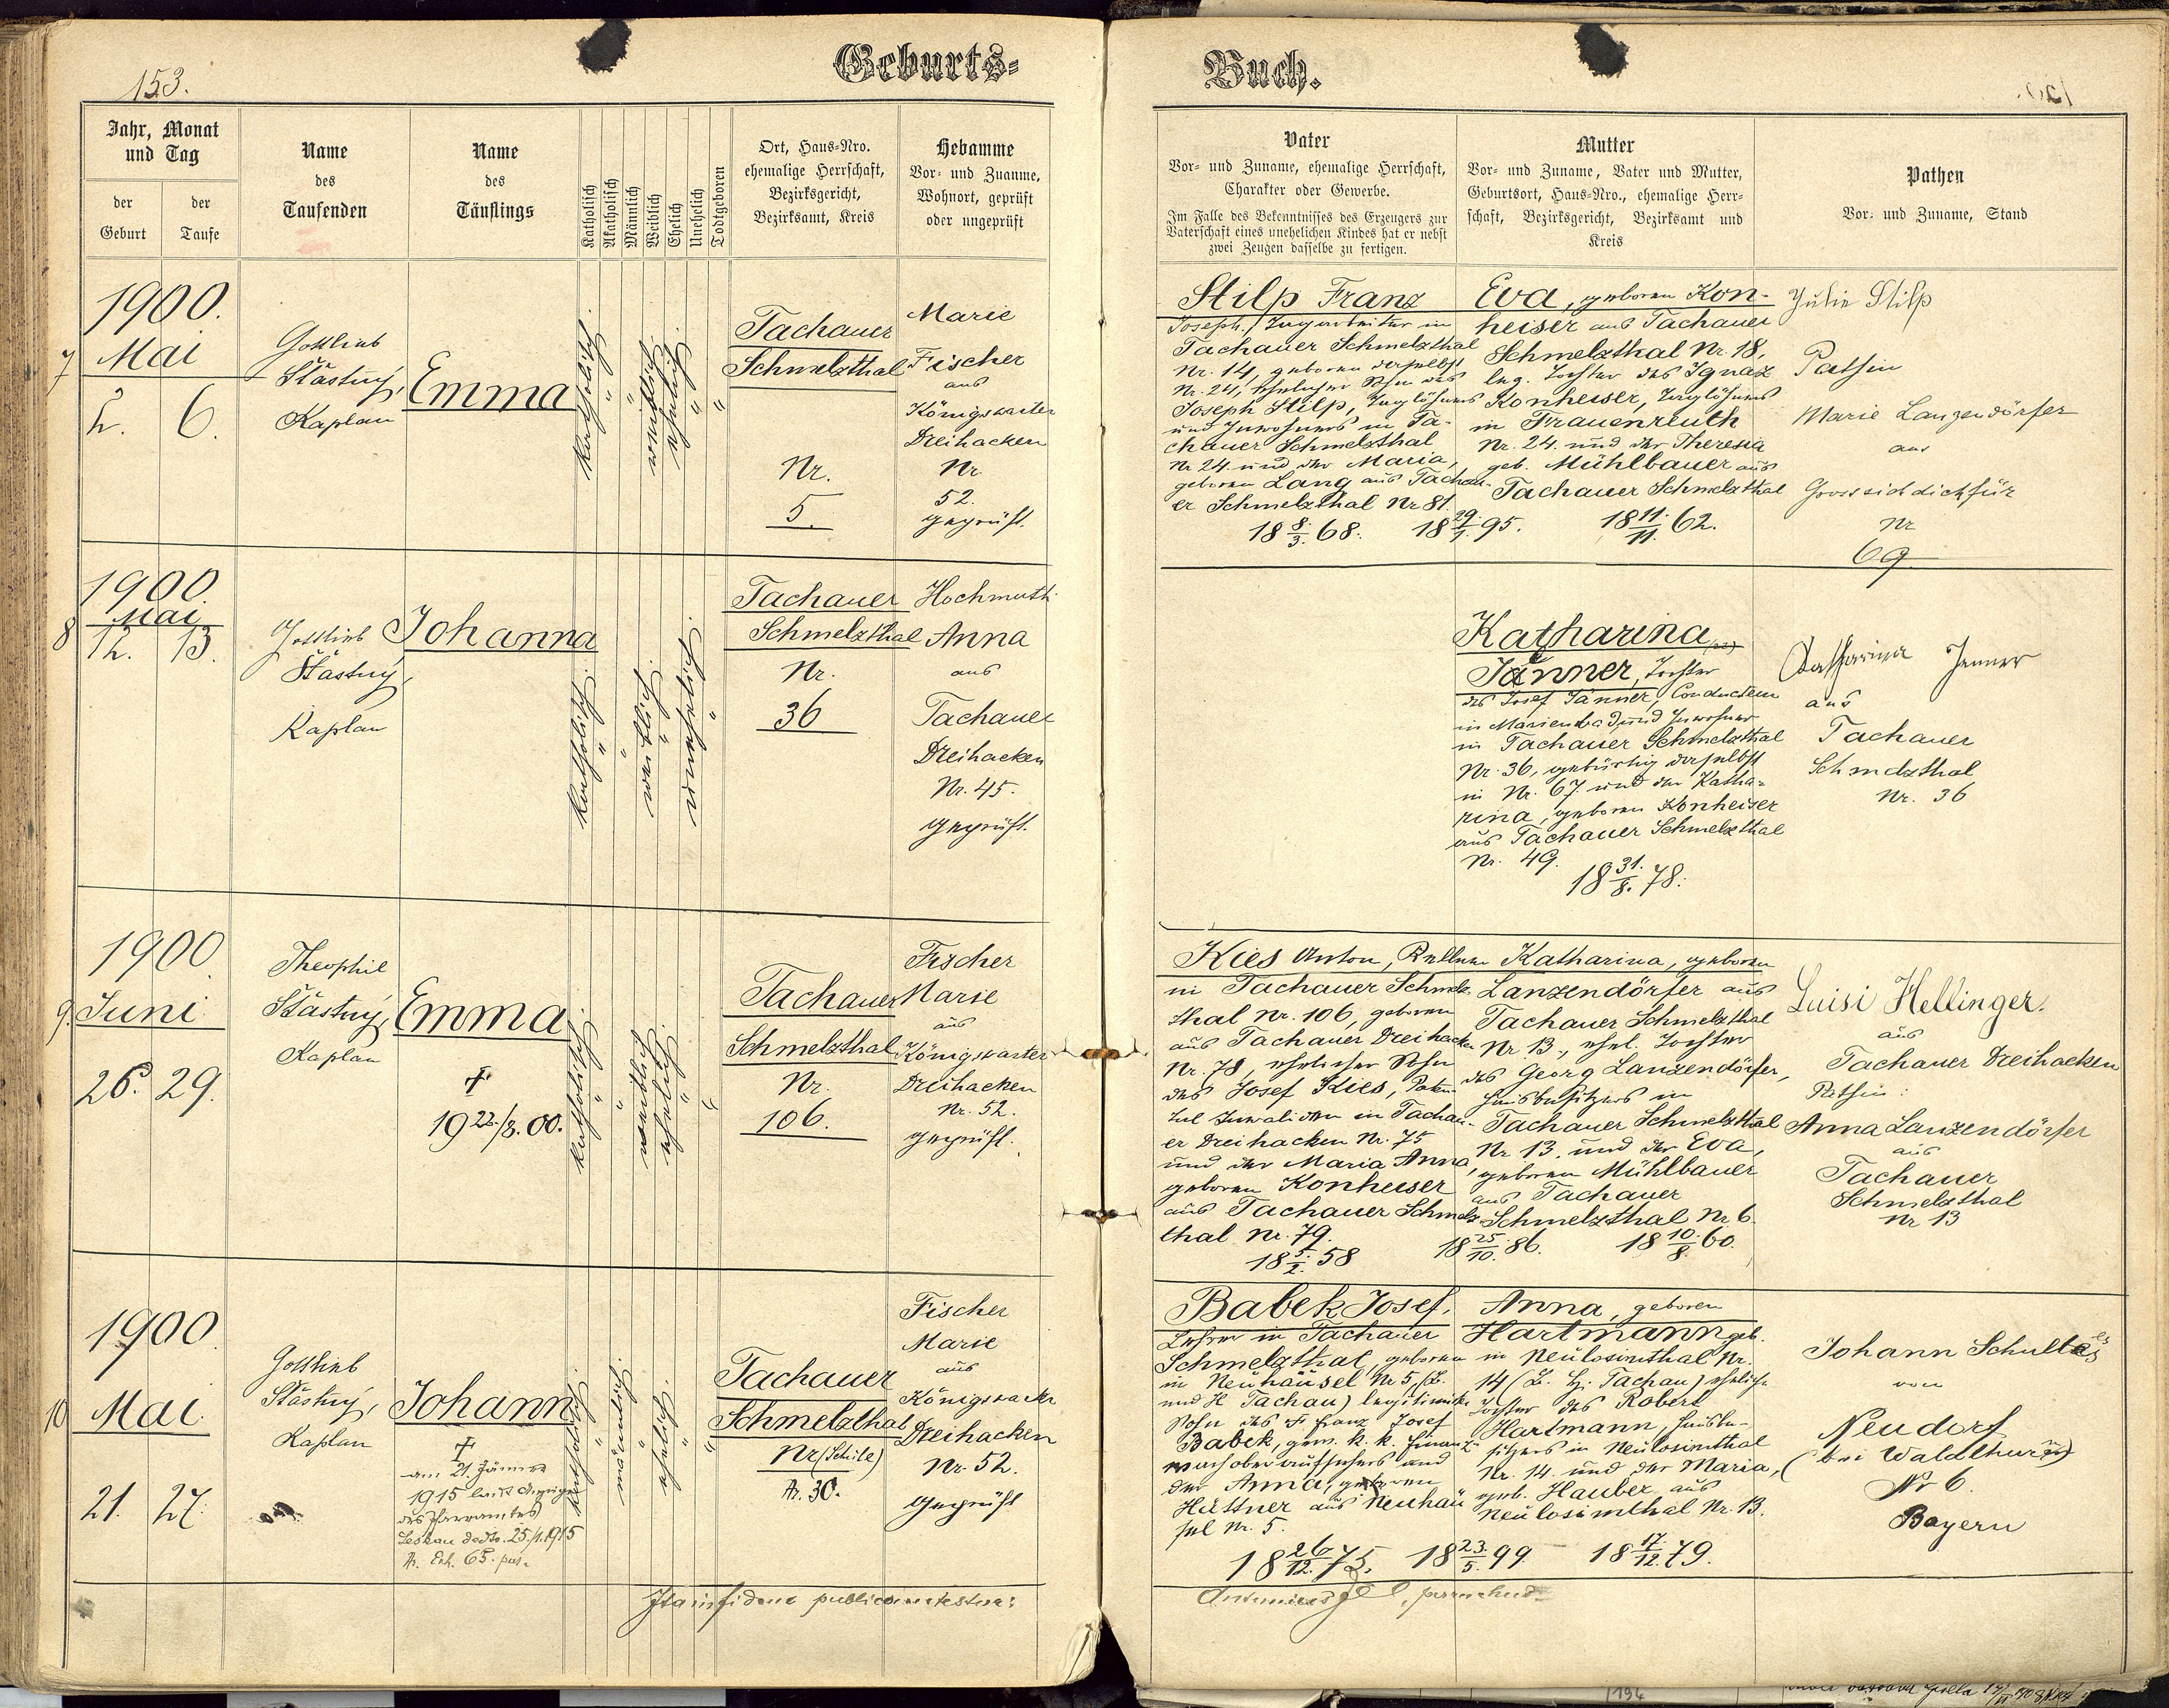 153.
Geburts=
Buch.
Jahr, Monat
und Tag
der
Geburt
der
Taufe
Name
des
Taufenden
Name
des
Täuflings
Katholisch
Akatholisch
Männlich
Weiblich
Ehelich
Unehelich
Todtgeboren
Ort, Haus=Nro.
ehemalige Herrschaft,
Bezirksgericht,
Bezirksamt, Kreis
Hebamme
Vor= und Zuanme,
Wohnort, geprüft
oder ungeprüft
Vater
Vor= und Zuname, ehemalige Herrschaft,
Charakter oder Gewerbe.
Im Falle des Bekenntnisses des Erzeugers zur
Vaterschaft eines unehelichen Kindes hat er nebst
zwei Zeugen dasselbe zu fertigen.
Mutter
Vor= und Zuname, Vater und Mutter,
Geburtsort, Haus=Nro., ehemalige Herr=
schaft, Bezirksgericht, Bezirksamt und
Kreis
Pathen
Vor= und Zuname, Stand
7
1900.
Mai
2. 6.
Gottlieb
Šťástný,
Kaplan
Emma
katholisch
"
"
weiblich
ehelich
"
"
Tachauer
Schmelzthal
Nr.
5.
Marie
Fischer
aus
Königswarter
Dreihacken
Nr.
52.
geprüft.
Stilp Franz
Joseph, Zugarbeiter in
Tachauer Schmelzthal
Nr. 14, geboren daselbst
Nr. 24, ehelicher Sohn des
Joseph Stilp, Taglöhners
und Inwohners in Ta-
chauer Schmelzthal
Nr 24 und der Maria,
geboren Lang aus Tachau-
er Schmelzthal Nr 81.
18 8./3. 68. 18 29./1. 95.
Eva, geboren Kon-
heiser aus Tachauer
Schmelzthal Nr. 18,
leg. Tochter des Ignaz
Konheiser, Taglöhners
in Frauenreuth
Nr. 24. und der Theresia
geb. Mühlbauer aus
Tachauer Schmelzthal
18 11./11. 62.
Julie Stilp
Pathin
Marie Lanzendörfer
aus
Grosssichdichfür
Nr
69
8
1900.
Mai
12. 13.
Gottlieb
Šťástný,
Kaplan
Johanna
katholisch
"
"
weiblich
"
unehelich
"
Tachauer
Schmelzthal
Nr.
36
Hochmuth
Anna
aus
Tachauer
Dreihacken
Nr. 45.
geprüft.
Katharina
Jänner, Tochter
des Josef Jänner, Conducteur
in Marienbad, und Inwohner
in Tachauer Schmelzthal
Nr. 36, gebürtig daselbst
in Nr. 67. und der Katha-
rina, geboren Konheiser
aus Tachauer Schmelzthal
Nr. 49.
18 31./8. 78.
Katharina Jenner
aus
Tachauer
Schmelzthal
Nr. 36
9.
1900
Juni
26. 29.
Theophil
Šťástný,
Kaplan
Emma
†
19 22./8. 00.
katholisch
"
"
weiblich
ehelich
"
"
Tachauer
Schmelzthal
Nr.
106.
Fischer
Marie
aus
Königswarter
Dreihacken
Nr. 52.
geprüft.
Kies Anton,
in Tachauer Schmelz-
thal Nr. 106, geboren
aus Tachauer Dreihacken
Nr. 78, ehelicher Sohn
des Josef Kies, Paten-
tal Invaliden in Tachau-
er Dreihacken Nr. 75
und der Maria Anna,
geboren Konheiser
aus Tachauer Schmelz-
thal Nr. 79.
18 5./2. 58 18 25./10. 86.
Katharina, geboren
Lanzendörfer aus
Tachauer Schmelzthal
Nr 13, ehel. Tochter
des Georg Lanzendörfer,
Hausbesitzers in
Tachauer Schmelzthal
Nr 13. und der Eva,
geboren Mühlbauer
aus Tachauer
Schmelzthal Nr 6.
18 10./8. 60.
Luisi Hellinger.
aus
Tachauer Dreihacken
Pathin:
Anna Lanzendörfer
aus
Tachauer
Schmelzthal
Nr 13
10
1900.
Mai.
21. 27.
Gottlieb
Šťástný,
Kaplan
Johann
†
am 21. Jänner
1915 laut Anzeige
des Pfarramtes
Leskau ddto. 25./1.1915
Nr. Exh. 65. pus.
katholisch
"
männlich
"
ehelich
"
"
Tachauer
Schmelzthal
Nr (Schule)
Nr. 30.
Fischer
Marie
aus
Königswarter
Dreihacken
Nr. 52.
geprüft
Babek Josef,
Lehrer in Tachauer
Schmelzthal, geboren
in Neuhäusel Nr 5, (B.
und H Tachau) legitimirter
Sohn des Franz Josef
Babek, gew. k. k. Finanz-
wachoberaufsehers und
der Anna, geboren
Hüttner aus Neuhäu
sel Nr. 5.
18 26/12. 75. 18 23./5. 99
Anna, geboren
Hartmann geb.
in Neulosimthal Nr.
14 (B. H. Tachau) eheliche
Tochter des Robert
Hartmann, Hausbe-
sitzers in Neulosimthal
Nr. 14. und der Maria,
geb. Hauber aus
Neulosimthal Nr. 13.
18 17./12. 79.
Johann Schultes
von
Neudorf
(bei Waldthurn)
Nr 6.
Bayern
Ita in fidem publicam testatur: